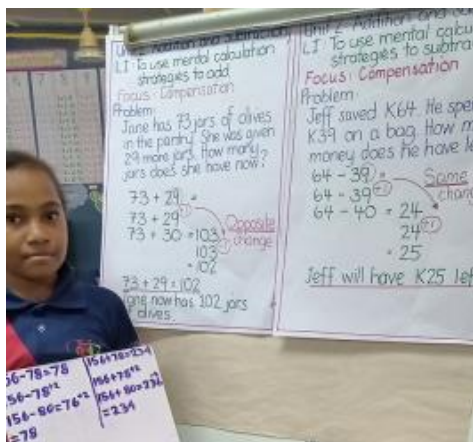 Unit 2 Addition and Subtraction
LI: To use mental calculation
strategies to add
Focus: Compensation
Problem
Jane has 73 jars of olives
in the pantry. She was given
29 more jars. How many
jars does she have now?
73 + 29 =
73 + 29 +1
73 + 30 = 103
103 -1
= 102
Opposite
change
73 + 29 = 102
Jane now has 102 jars
of olives.
Unit 2 Addition and
LI: To use mental calcu
strategies to subtra
Focus: Compensation
Problem
Jeff saved K64. He spe
K39 on a bag. How m
money does he have le
64 - 39 =
64 - 39 +1
64 - 40 = 24
24 +1
= 25
Same
chan
Jeff will have K25 lef
56-78=78
56-78+2
156-80=76+2
=78
156+78=234
156+78+2
156+80=236
=234